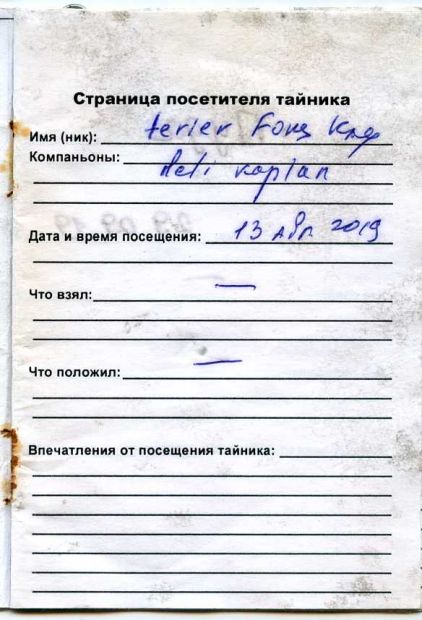 Страница посетителя тайника
Имя (ник): terier Fong
Компаньоны:
kaplan
Дата и время посещения: 13 апр 2019
Что взял: —
Что положил: —
Впечатления от посещения тайника: